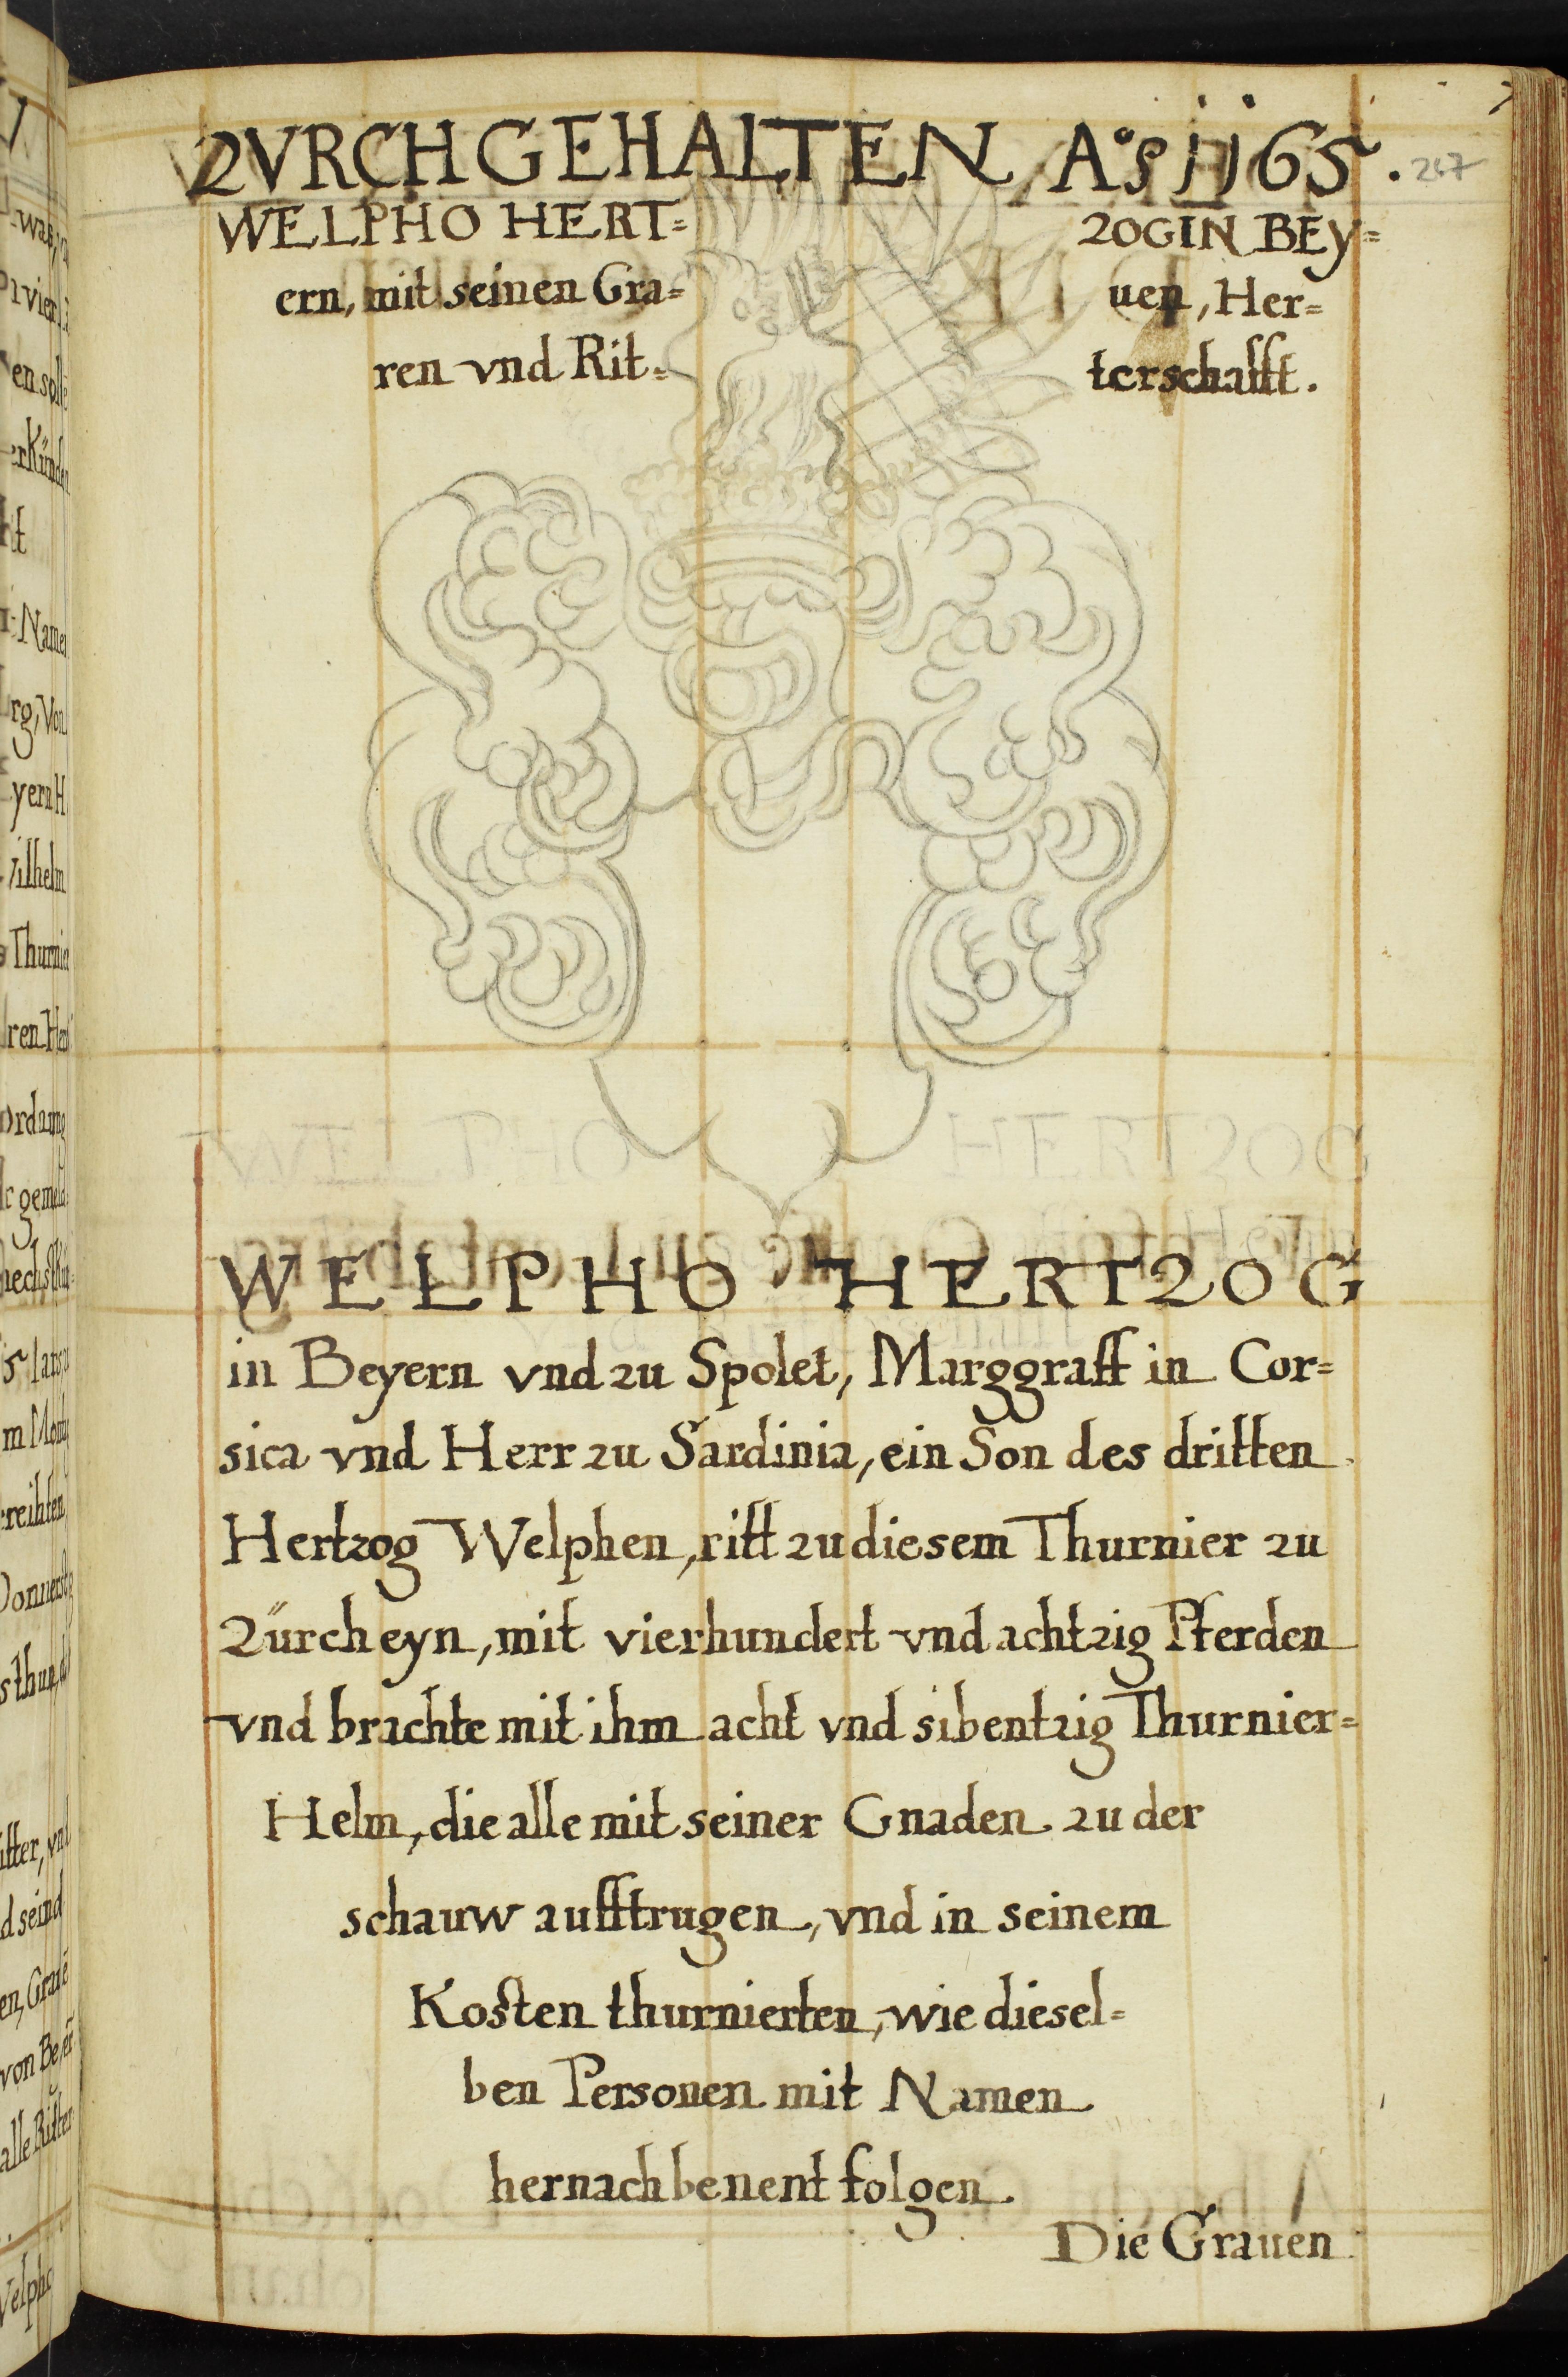 ZVRCH GEHALTEN Aº 1165. 267
WELPHO HERT= ZOGIN BEY=
ern, mit seinen Gra= uen, Her=
ren vnd Rit= terschafft.
WELPHO HERTZOG
WELPHO HERTZOG
in Beyern vnd zu Spolet, Marggraff in Cor=
sica vnd Herr zu Sardinia, ein Son des dritten
Hertzog Welphen, ritt zu diesem Thurnier zu
Zürch eyn, mit vierhundert vnd achtzig Pferden
vnd brachte mit ihm acht vnd sibentzig Thurnier=
Helm, die alle mit seiner Gnaden zu der
schauw aufftrugen, vnd in seinem
Kosten thurnierten, wie diesel=
ben Personen mit Namen
hernach benent folgen.
Die Grauen